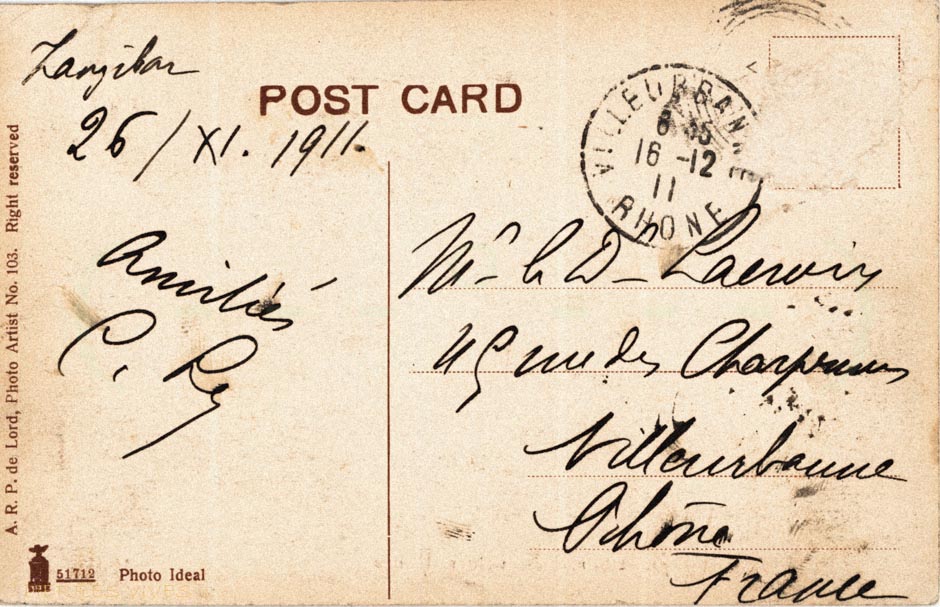 Zanzibar
26/XI. 1911.
POST CARD
Amitiés
C. Rey
VILLEURBANNE
8 35
16 -12
11
RHONE
Mr le Dr Lacroix
49 rue des Charpennes
Villeurbanne
Rhône
France
A. R. P. de Lord, Photo Artist No. 103. Right reserved
51712 Photo Ideal